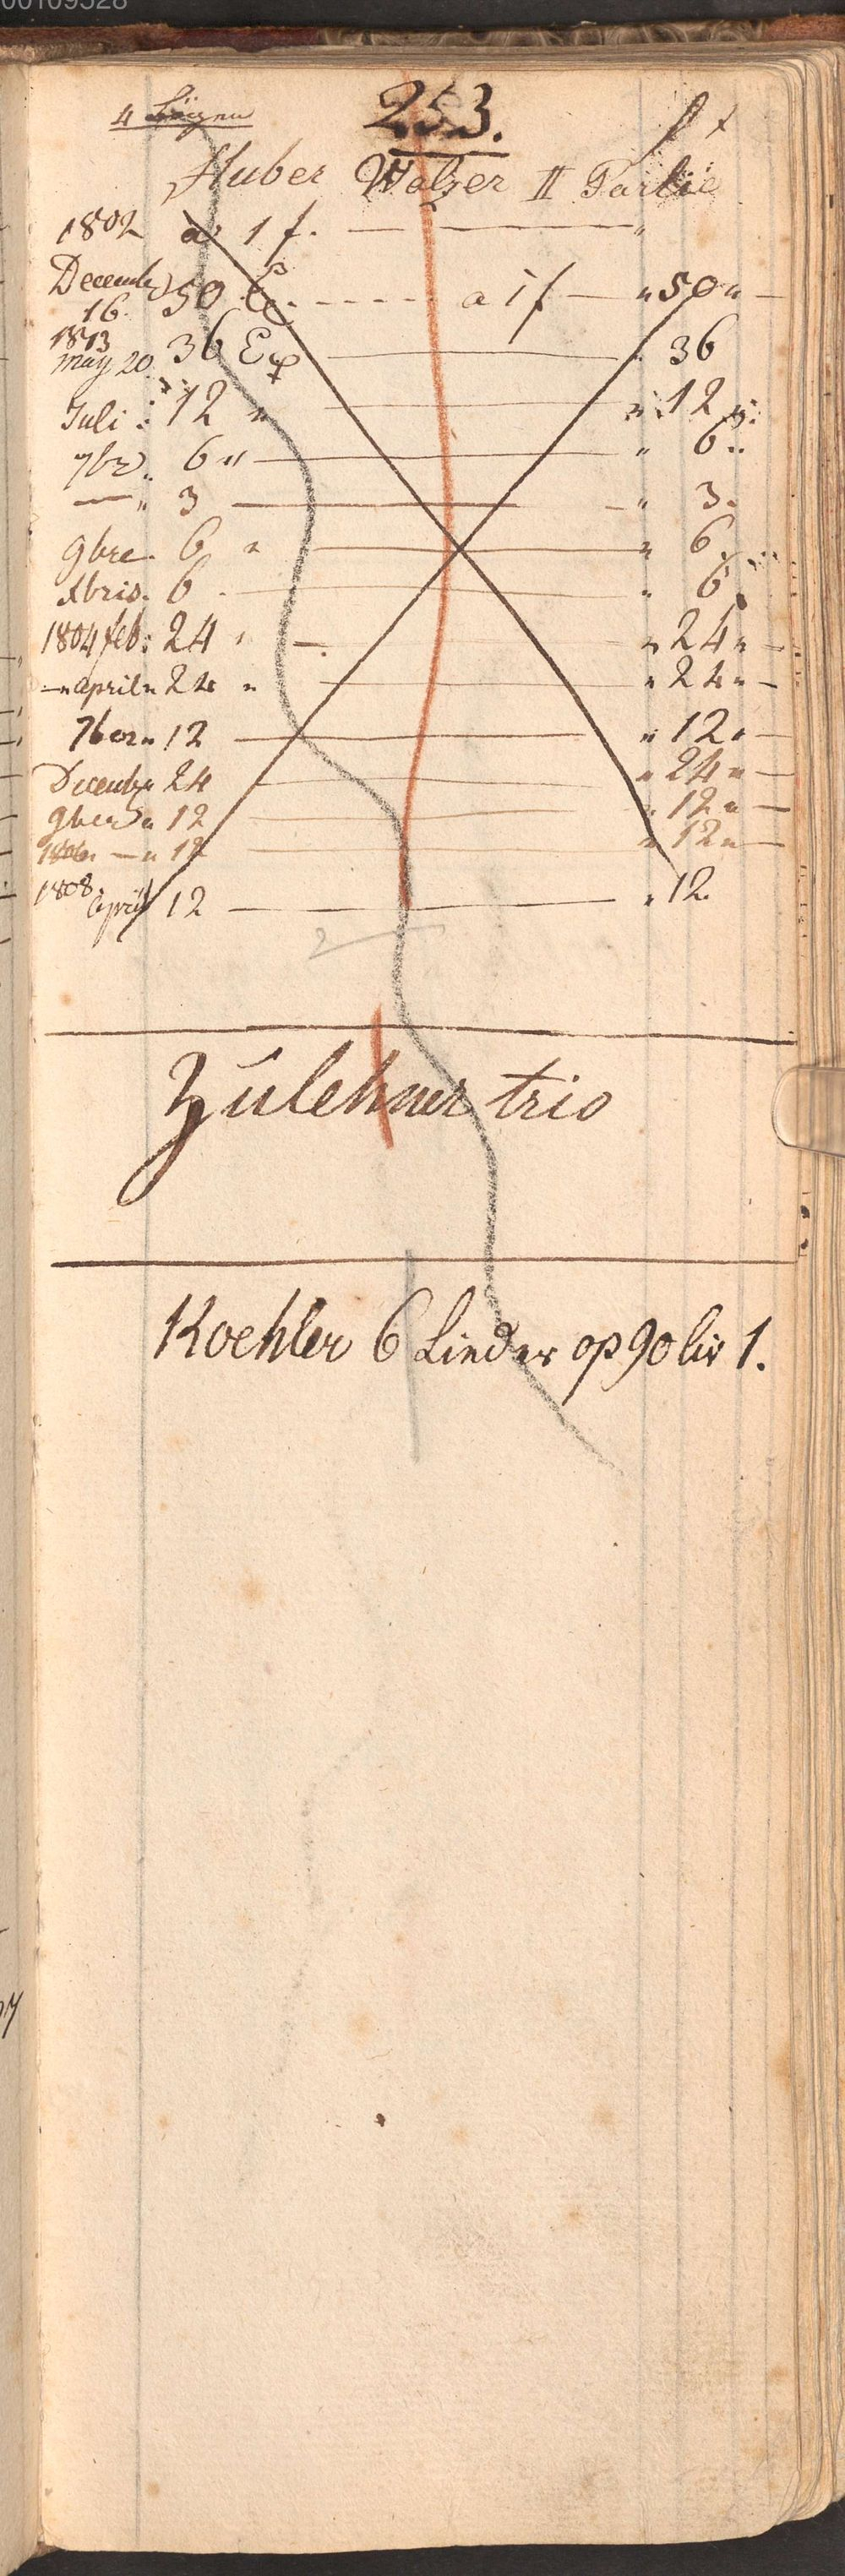 00109528
4 Bögen 253. f x
Huber Walzer II Partie
1802 a 1 f. — "
Decembr 16. 50 E. - - - - a 1 f — " 50 " —
1803 may 20. 36 Exp — " 36
Juli : 12 " — " 12 "
7br. 6 " — " 6 "
— " 3 — " 3.
9bre. 6 " — " 6
Xbris. 6 — " 6
1804 feb: 24 " — " 24 " —
—" april " 24 " — " 24 " —
7ber " 12 — " 12 " —
Decembr 24 — " 24 " —
9ber " 12 — " 12 " —
1806 — " 12 — " 12 " —
1808. april 12 — " 12.
Zulehner trio
Koehler 6 Lieder op 90 liv 1.